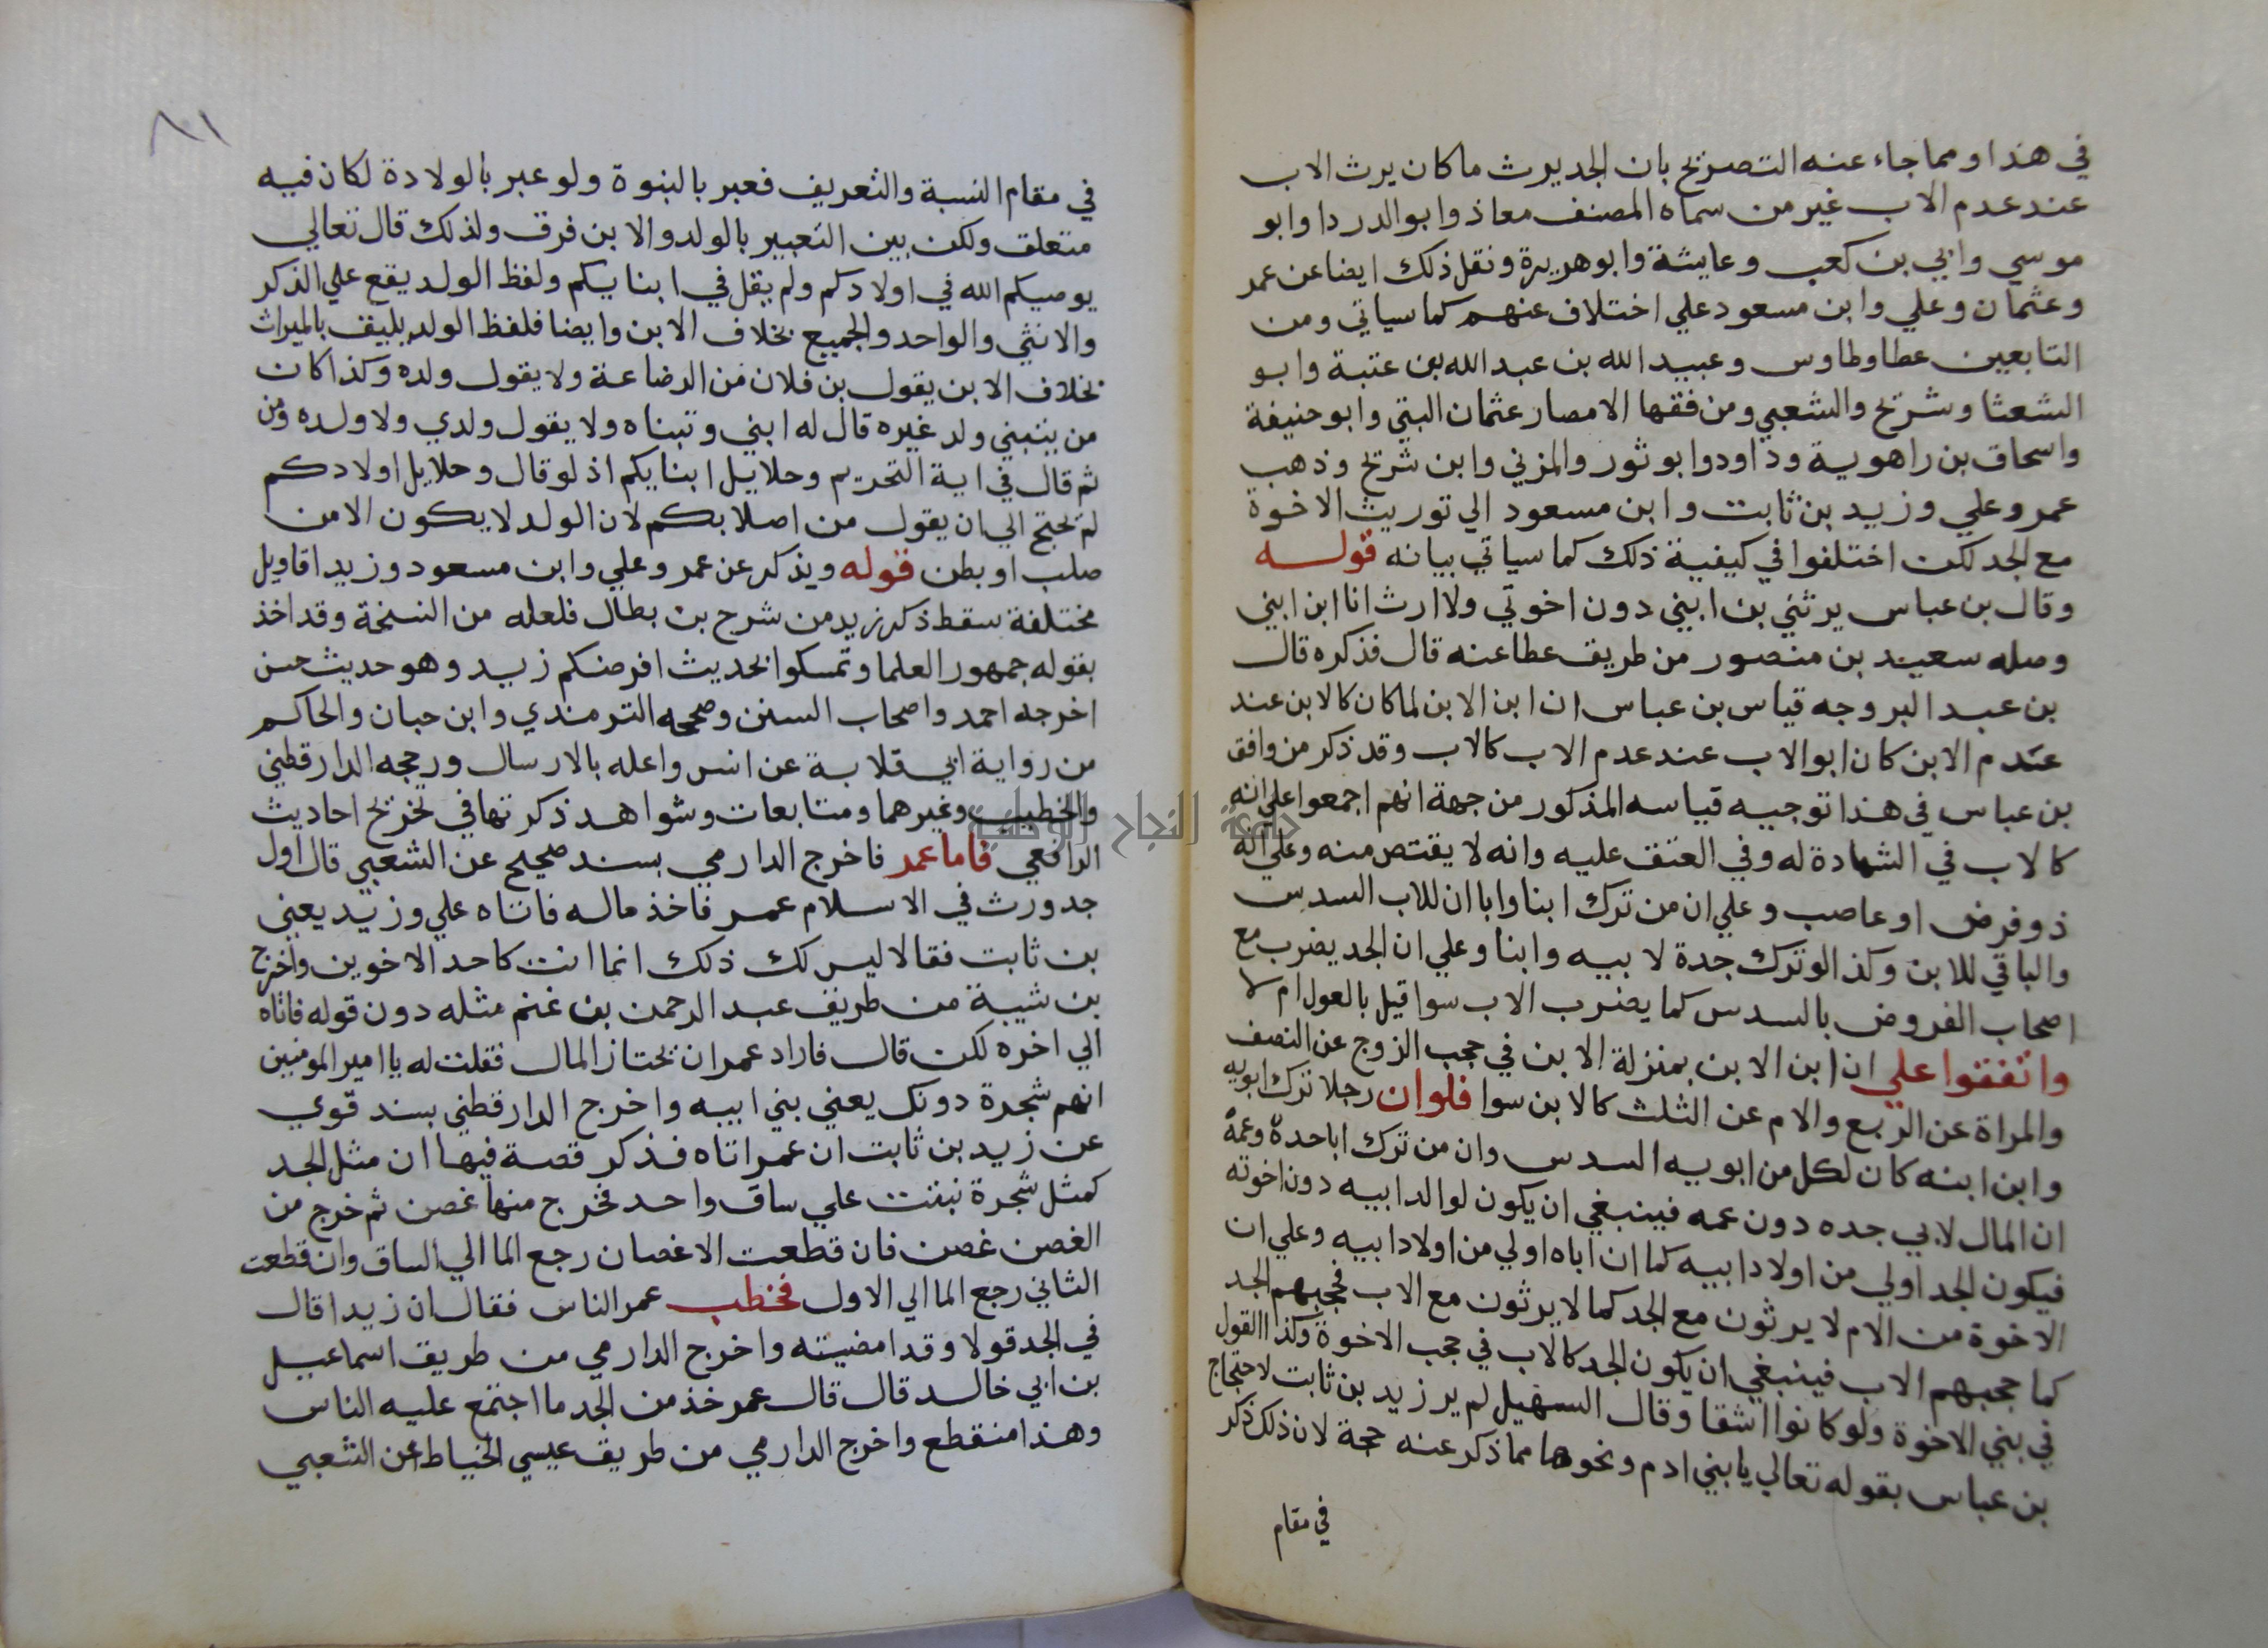 في هذا ومما جاء عنه التصريح بان الجد يرث ما كان يرث الاب
عند عدم الاب غير من سماه المصنف معاذ وابو الدردا وابو
موسي وابي بن كعب وعايشة وابو هريرة ونقل ذلك ايضا عن عمر
وعثمان وعلي وابن مسعود علي اختلاف عنهم كما سياتي ومن
التابعين عطا وطاوس وعبيد الله بن عبد الله بن عتبة وابو
الشعثا وشريح والشعبي ومن فقها الامصار عثمان البتي وابو حنيفة
واسحاق بن راهوية وداود وابو ثور والمزني وابن شريح وذهب
عمر وعلي وزيد بن ثابت وابن مسعود الي توريث الاخوة
مع الجد لكن اختلفوا في كيفية ذلك كما سياتي بيانه قوله
وقال بن عباس يرثني بن ابني دون اخوتي ولا ارث انا ابن ابني
وصله سعيد بن منصور من طريق عطا عنه قال فذكره قال
بن عبد البر وجه قياس بن عباس ان ابن الابن لما كان كالابن عند
عدم الابن كان ابو الاب عند عدم الاب كالاب وقد ذكر من وافق
بن عباس في هذا توجيه قياسه المذكور من جهة انهم اجمعوا علي انه
كالاب في الشهادة له وفي العتق عليه وانه لا يقتص منه وعلي انه
ذو فرض او عاصب وعلي ان من ترك ابنا وابا ان للاب السدس
والباقي للابن وكذا لو ترك جدة لابيه وابنا وعلي ان الجد يضرب مع
اصحاب الفروض بالسدس كما يضرب الاب سوا قيل بالعول ام لا
واتفقوا علي ان ابن الابن بمنزلة الابن في حجب الزوج عن النصف
والمراة عن الربع والام عن الثلث كالابن سوا فلو ان رجلا ترك ابويه
وابن ابنه كان لكل من ابويه السدس وان من ترك ابا حده وعمه
ان المال لابي جده دون عمه فينبغي ان يكون لوالد ابيه دون اخوته
فيكون الجد اولي من اولاد ابيه كما ان اباه اولي من اولاد ابيه وعلي ان
الاخوة من الام لا يرثون مع الجد كما لا يرثون مع الاب فحجبهم الجد
كما حجبهم الاب فينبغي ان يكون الجد كالاب في حجب الاخوة وكذا القول
في بني الاخوة ولو كانوا اشقا وقال السهيل لم ير زيد بن ثابت لاحتجاج
بن عباس بقوله تعالي يا بني ادم ونحوها مما ذكر عنه حجة لان ذلك ذكر
في مقام
٨١
في مقام النسبة والتعريف فعبر بالبنوة ولو عبر بالولادة لكان فيه
متعلق ولكن بين التعبير بالولد والابن فرق ولذلك قال تعالي
يوصيكم الله في اولادكم ولم يقل في ابنايكم ولفظ الولد يقع علي الذكر
والانثي والواحد والجميع بخلاف الابن وايضا فلفظ الولد يليق بالميراث
بخلاف الابن يقول بن فلان من الرضاعة ولا يقول ولده وكذا كان
من يتبني ولد غيره قال له ابني وتبناه ولا يقول ولدي ولا ولده ومن
ثم قال في اية التحريم وحلايل ابنايكم اذ لو قال وحلايل اولادكم
لم يحتج الي ان يقول من اصلابكم لان الولد لا يكون الا من
صلب او بطن قوله ويذكر عن عمر وعلي وابن مسعود وزيد اقاويل
مختلفة سقط ذكر زيد من شرح بن بطال فلعله من النسخة وقد اخذ
بقوله جمهور العلما وتمسكوا بحديث افرضكم زيد وهو حديث حسن
اخرجه احمد واصحاب السنن وصححه الترمندي وابن حبان والحاكم
من رواية ابي قلابة عن انس واعله بالارسال ورجحه الدارقطني
والخطيب وغيرهما ومتابعات وشواهد ذكرتها في تخريج احاديث
الرافعي فاما عمر فاخرج الدارمي بسند صحيح عن الشعبي قال اول
جد ورث في الاسلام عمر فاخذ ماله فاتاه علي وزيد يعني
بن ثابت فقالا ليس لك ذلك انما انت كاحد الاخوين واخرج
بن شيبة من طريق عبد الرحمن بن غنم مثله دون قوله فاتاه
الي اخره لكن قال فاراد عمر ان يحتاز المال فقلت له يا امير المومنين
انهم شجرة دونك يعني بني ابيه واخرج الدارقطني بسند قوي
عن زيد بن ثابت ان عمر اتاه فذكر قصة فيها ان مثل الجد
كمثل شجرة نبتت علي ساق واحد فخرج منها غصن ثم خرج من
الغصن غصن فان قطعت الاغصان رجع الما الي الساق وان قطعت
الثاني رجع الما الي الاول فخطب عمر الناس فقال ان زيدا قال
في الجد قولا وقد امضيته واخرج الدارمي من طريق اسماعيل
بن ابي خالد قال قال عمر خذ من الجد ما اجتمع عليه الناس
وهذا منقطع واخرج الدارمي من طريق عيسي الخياط عن الشعبي
جامعة النجاح الوطنية